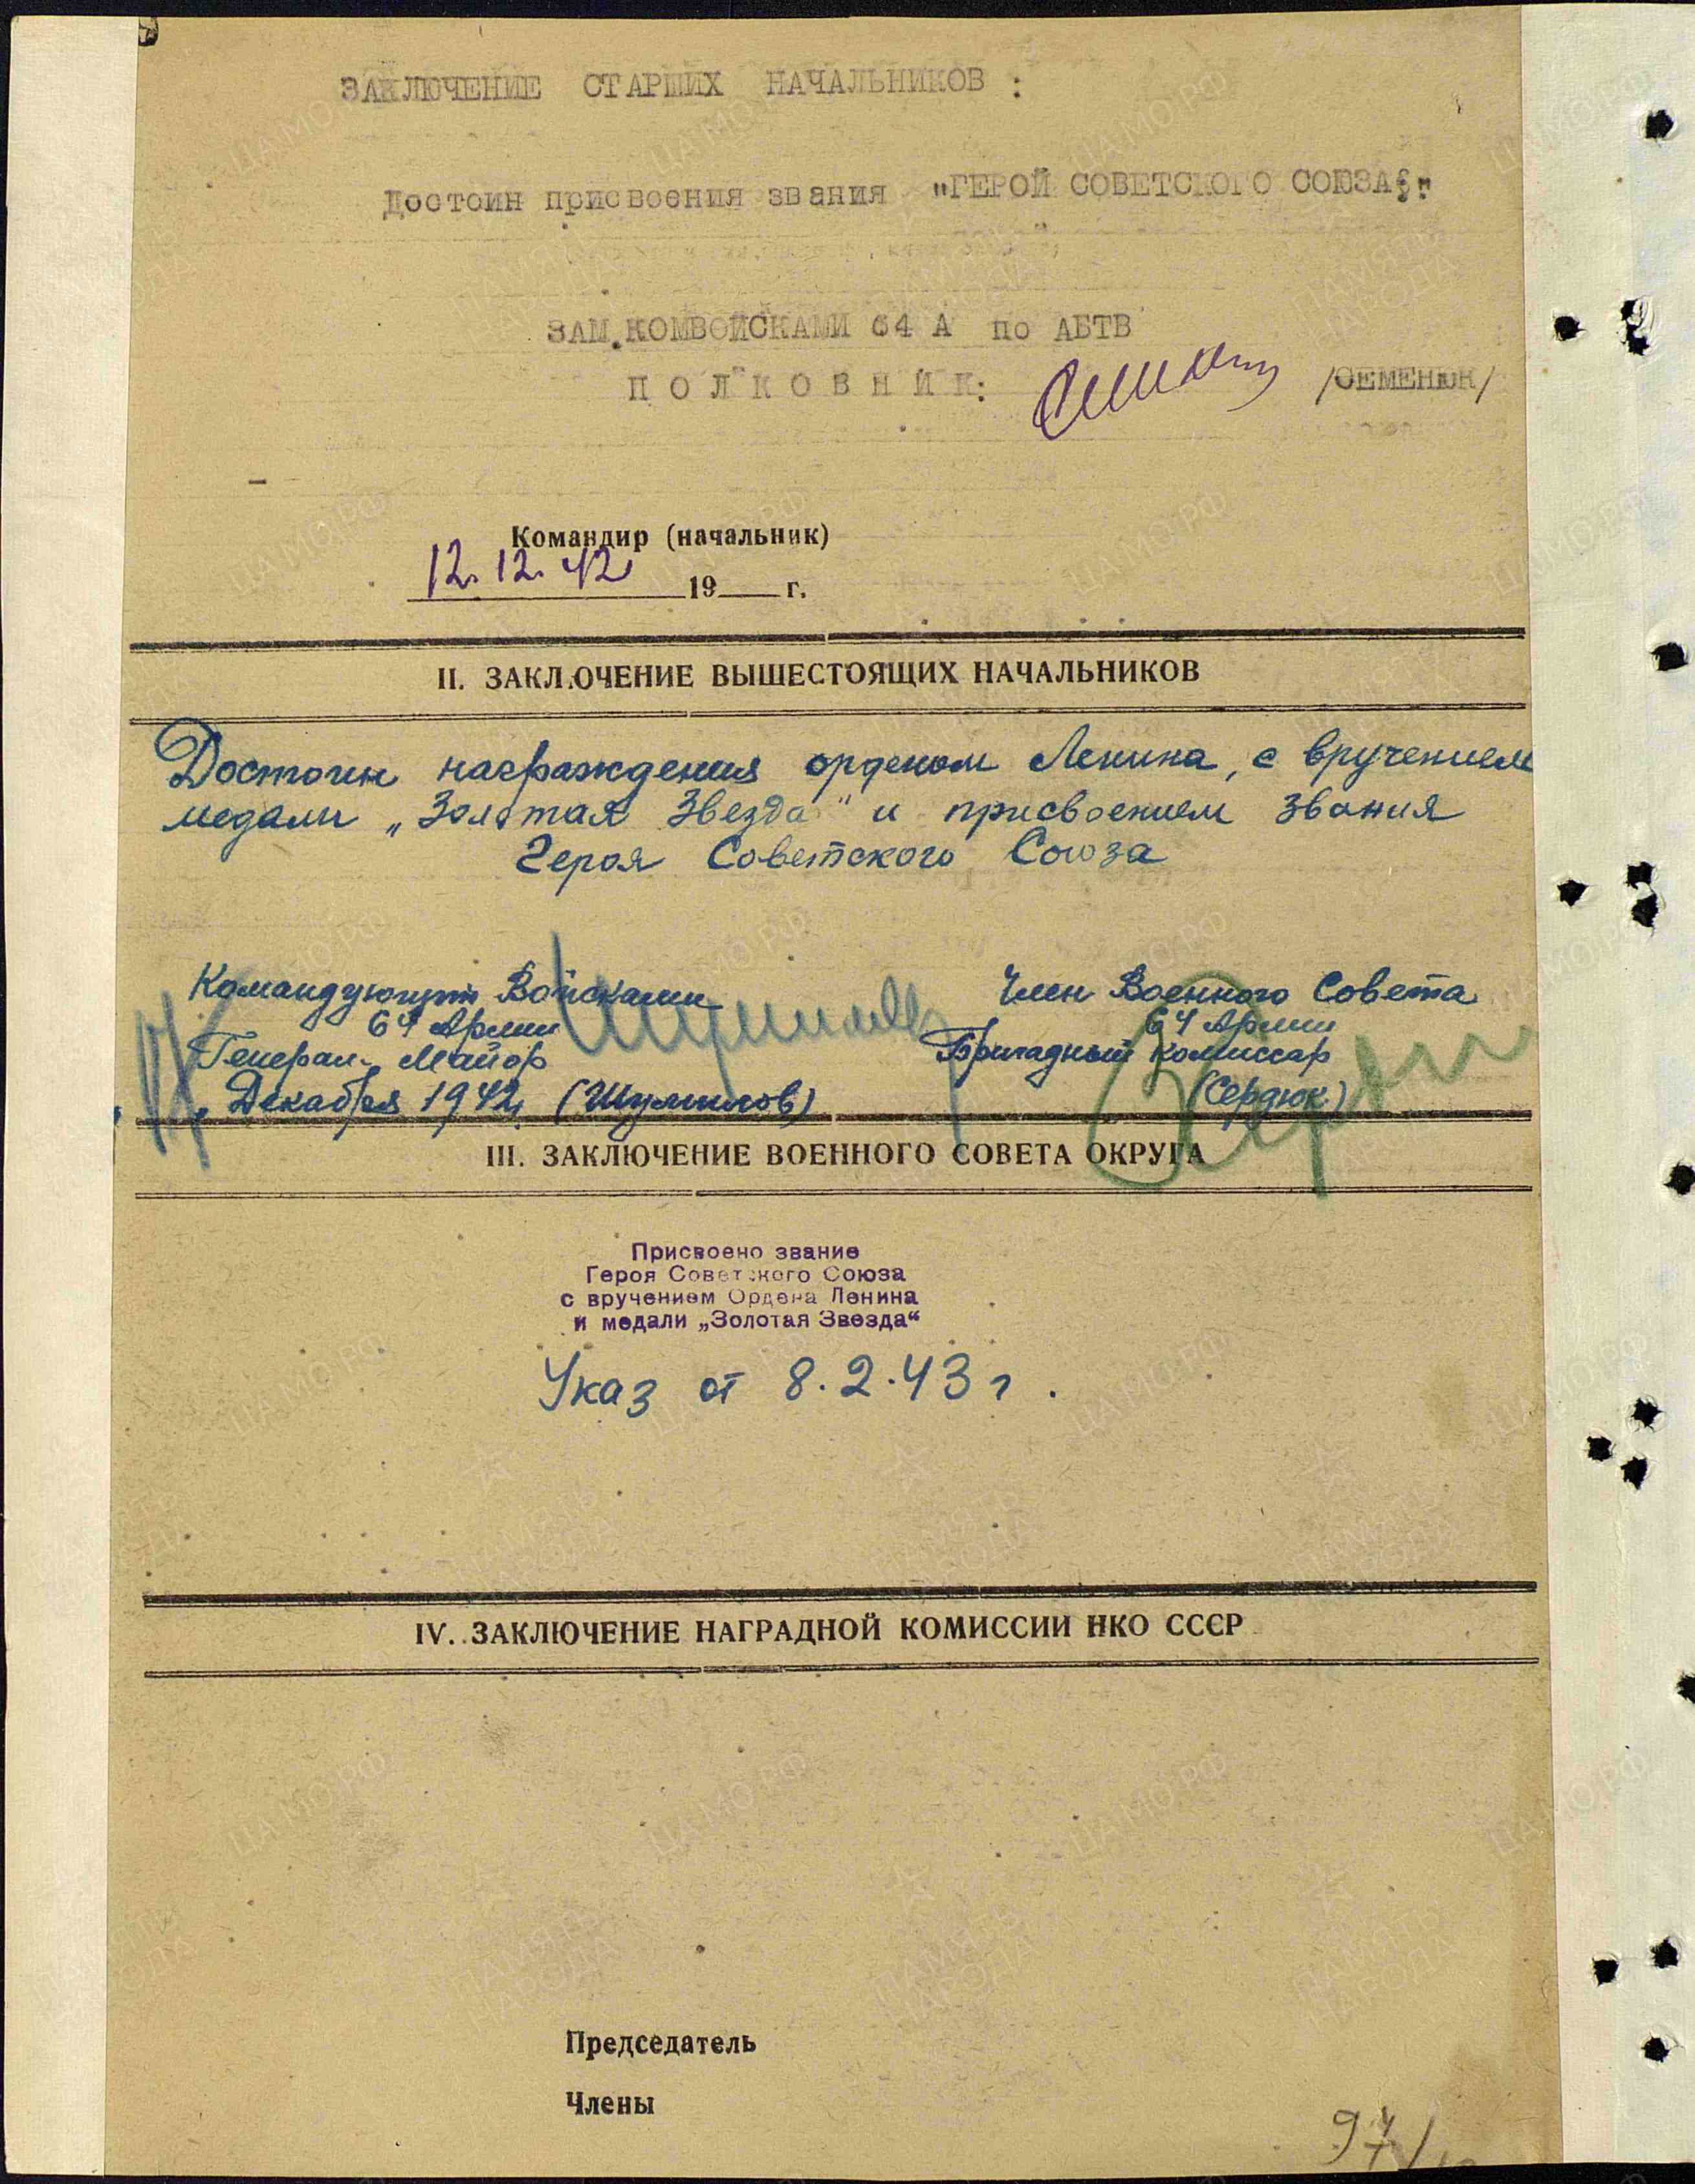 ЗАКЛЮЧЕНИЕ СТАРШИХ НАЧАЛЬНИКОВ :
Достоин присвоения звания "ГЕРОЙ СОВЕТСКОГО СОЮЗА".
ЗАМ.КОМВОЙСКАМИ 64 А по АБТВ
ПОЛКОВНИК: /СЕМЕНЮК/
Командир (начальник)
12.12.42 19 г.
II. ЗАКЛЮЧЕНИЕ ВЫШЕСТОЯЩИХ НАЧАЛЬНИКОВ
Достоин награждения орденом Ленина, с вручением
медали „Золотая Звезда" и присвоением звания
Героя Советского Союза
Командующий Войсками Член Военного Совета
64 Армии 64 Армии
Генерал-Майор Бригадный комиссар
Декабря 1942 (Шумилов) (Сердюк)
III. ЗАКЛЮЧЕНИЕ ВОЕННОГО СОВЕТА ОКРУГА
Присвоено звание
Героя Советского Союза
с вручением Ордена Ленина
и медали „Золотая Звезда“
Указ от 8.2.43 г.
IV. ЗАКЛЮЧЕНИЕ НАГРАДНОЙ КОМИССИИ НКО СССР
Председатель
Члены